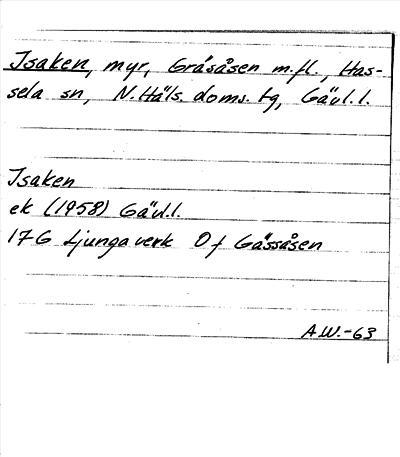 Isaken, myr, Gräsåsen m.fl., Has-
sela sn, N.Häls. doms. tg, Gävl.l.
Isaken
ek (1958) Gävl.l.
17G Ljungaverk Of Gässåsen
A.W.-63